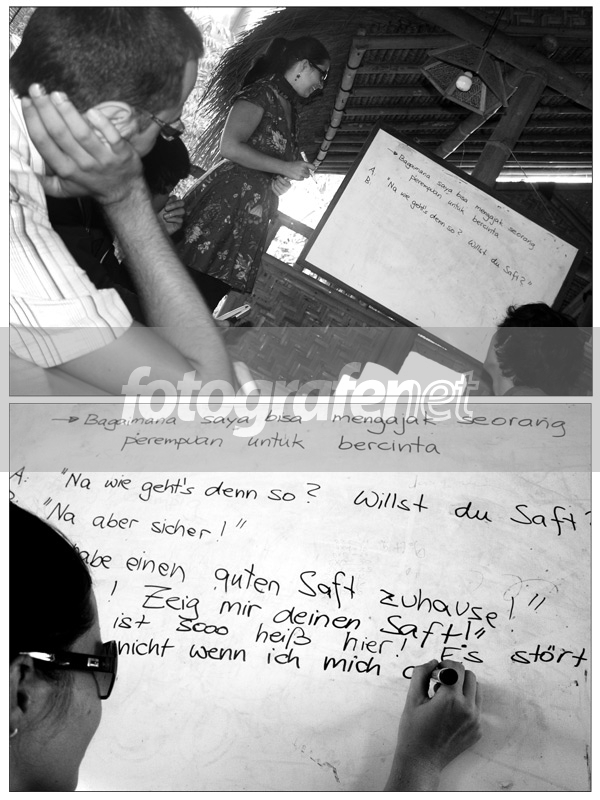 → Bagaimana saya bisa mengajak seorang
perempuan untuk bercinta
A:
B:
"Na wie geht's denn so? Willst du Saft?"
fotografenet
→ Bagaimana saya bisa mengajak seorang
perempuan untuk bercinta
A: "Na wie geht's denn so? Willst du Saft?
"Na aber sicher!"
habe einen guten Saft zuhause!"
! Zeig mir deinen Saft!"
ist sooo heiß hier! Es stört
nicht wenn ich mich